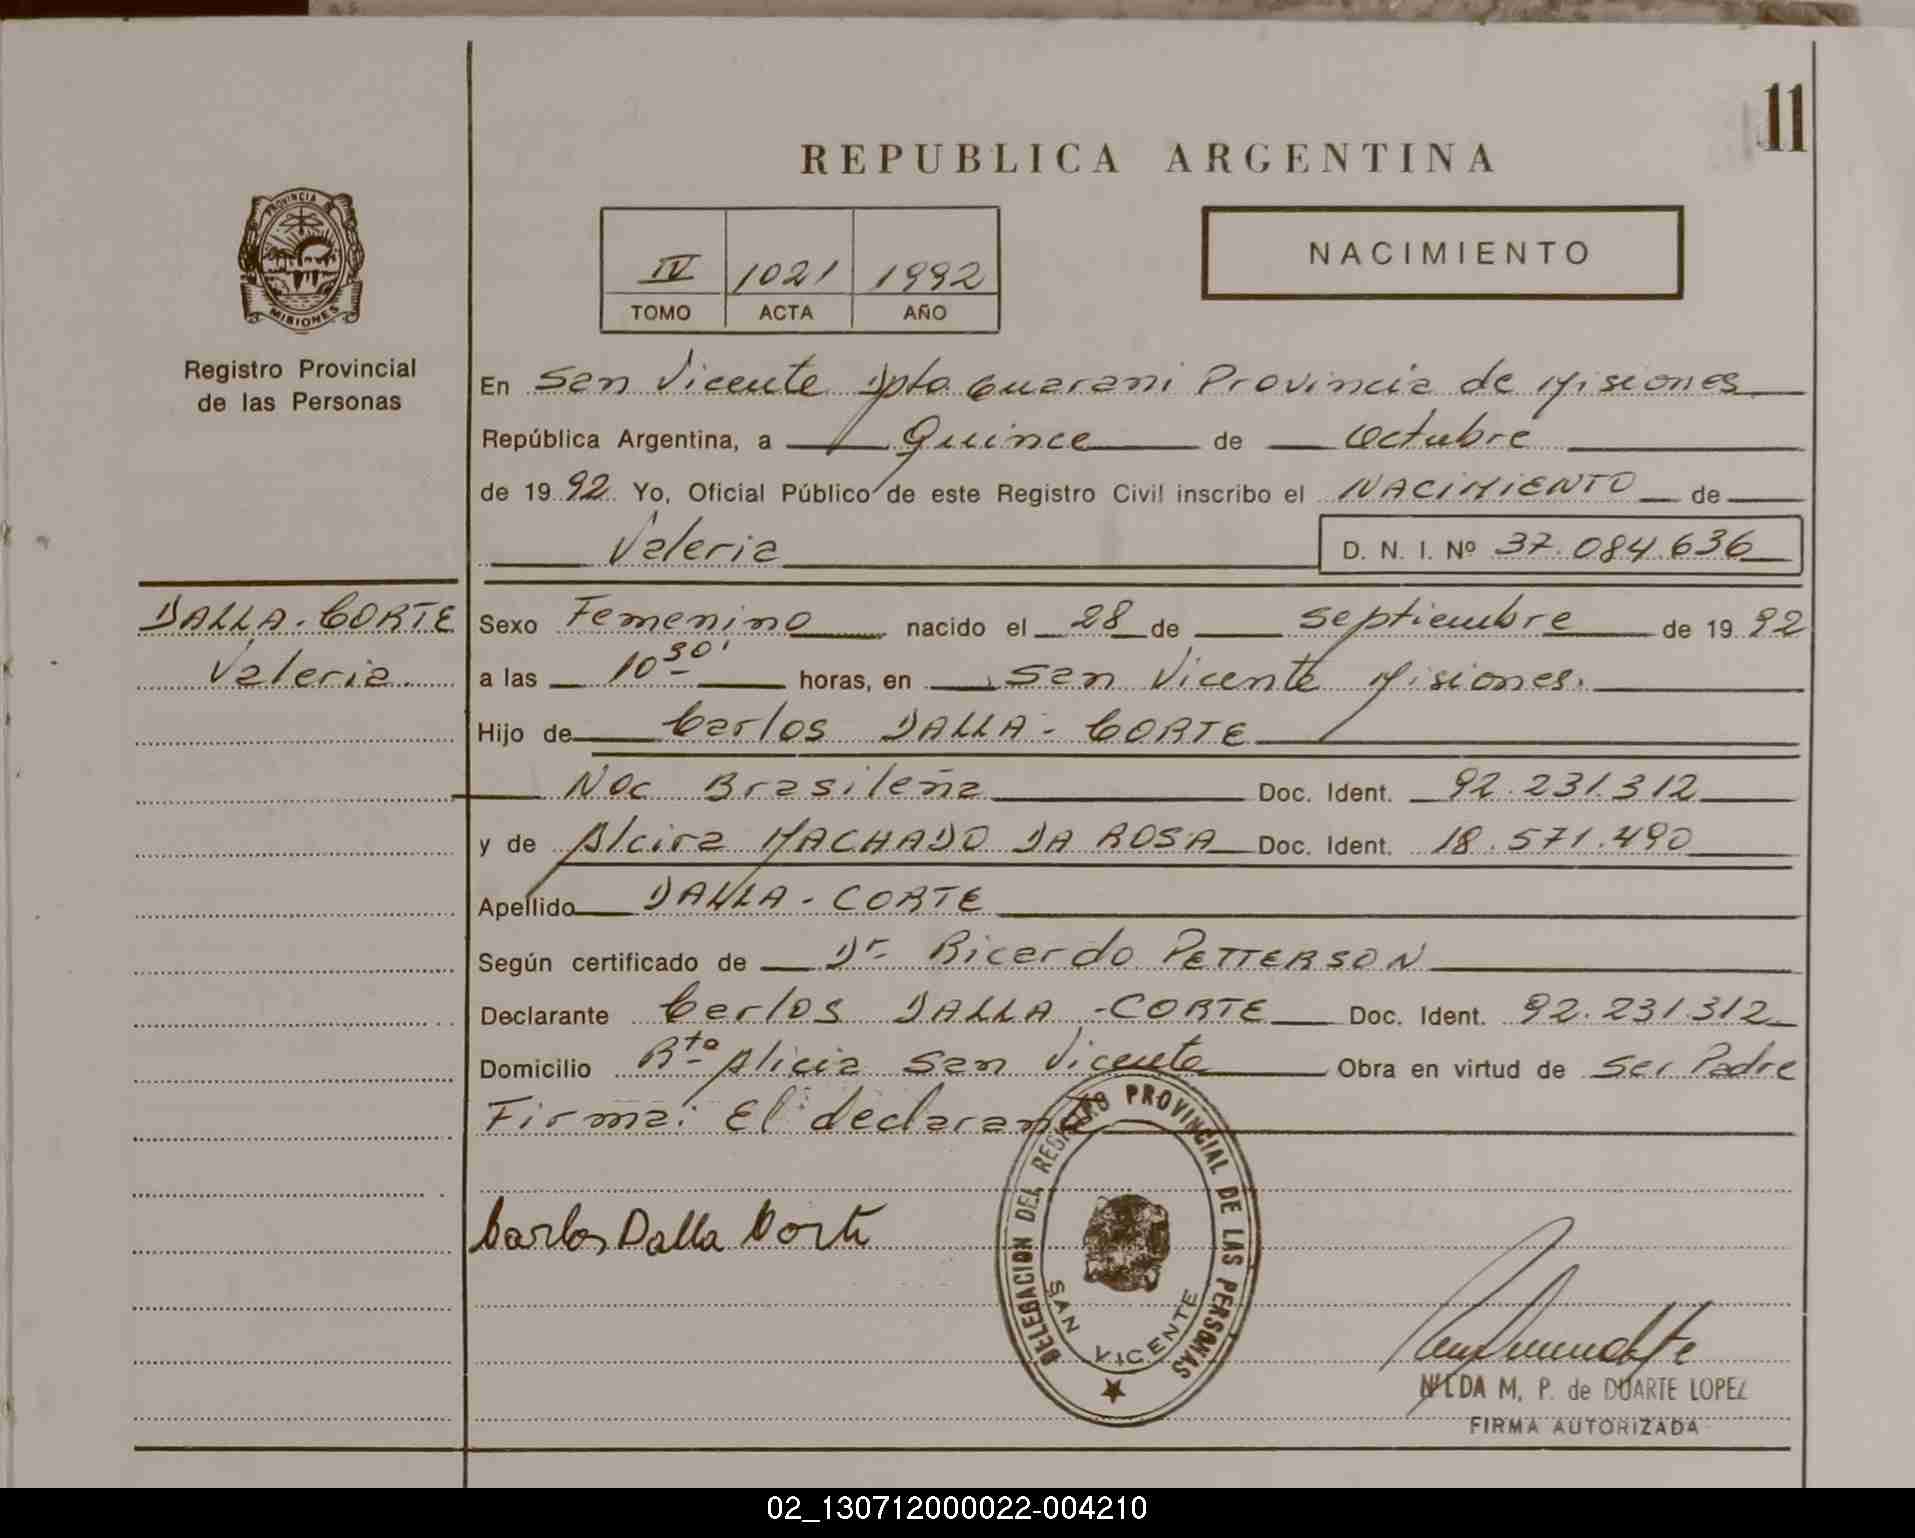 11
REPUBLICA ARGENTINA
PROVINCIA DE
MISIONES
Registro Provincial
de las Personas
IV 1021 1992
TOMO ACTA AÑO
NACIMIENTO
En San Vicente Dpto Guarani Provincia de Misiones
República Argentina, a Quince de Octubre
de 19 92 Yo, Oficial Público de este Registro Civil inscribo el NACIMIENTO de
Valeria D. N. I. Nº 37.084.636
DALLA-CORTE
Valeria.
Sexo Femenino nacido el 28 de septiembre de 19 92
a las 10 30' horas, en San Vicente Misiones.
Hijo de Carlos DALLA-CORTE
Nac Brasileña Doc. Ident. 92.231.312
y de Alcira MACHADO DA ROSA Doc. Ident. 18.571.490
Apellido DALLA-CORTE
Según certificado de Dr Ricardo PETTERSON
Declarante Carlos DALLA-CORTE Doc. Ident. 92.231.312
Domicilio Rto Alicia San Vicente Obra en virtud de ser Padre
Firma: El declarante
Carlos Dalla Corte
DELEGACION DEL REGISTRO PROVINCIAL DE LAS PERSONAS
SAN VICENTE
NILDA M. P. de DUARTE LOPEZ
FIRMA AUTORIZADA
02_130712000022-004210